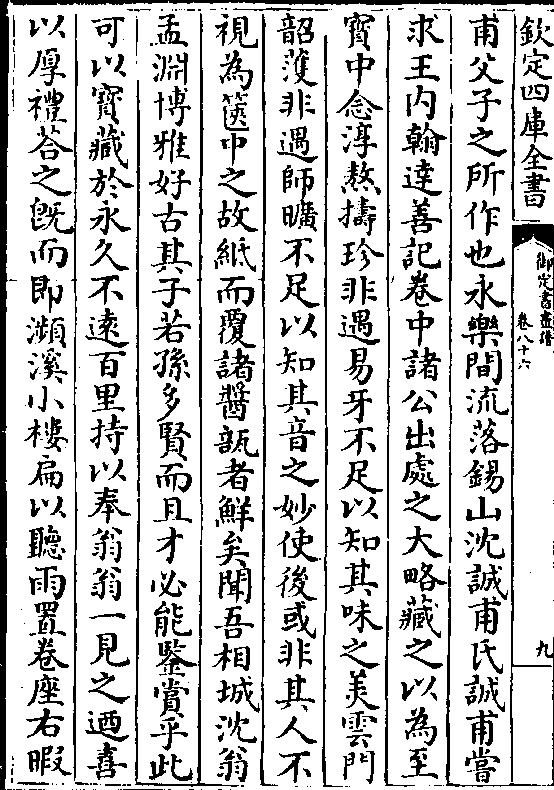 欽定四庫全書
御定書畫譜
卷八十六
九
甫父子之所作也永樂間流落錫山沈誠甫氏誠甫嘗
求王内翰達善記卷中諸公出處之大略藏之以為至
寳中念淳熬擣珍非遇易牙不足以知其味之美雲門
韶䕶非遇師曠不足以知其音之妙使後或非其人不
視為篋中之故紙而覆諸醬瓿者鮮矣聞吾相城沈翁
孟淵博雅好古其子若孫多賢而且才必能鑒賞乎此
可以寳藏於永久不逺百里持以奉翁翁一見之迺喜
以厚禮荅之既而即瀕溪小樓扁以聽雨置卷座右暇